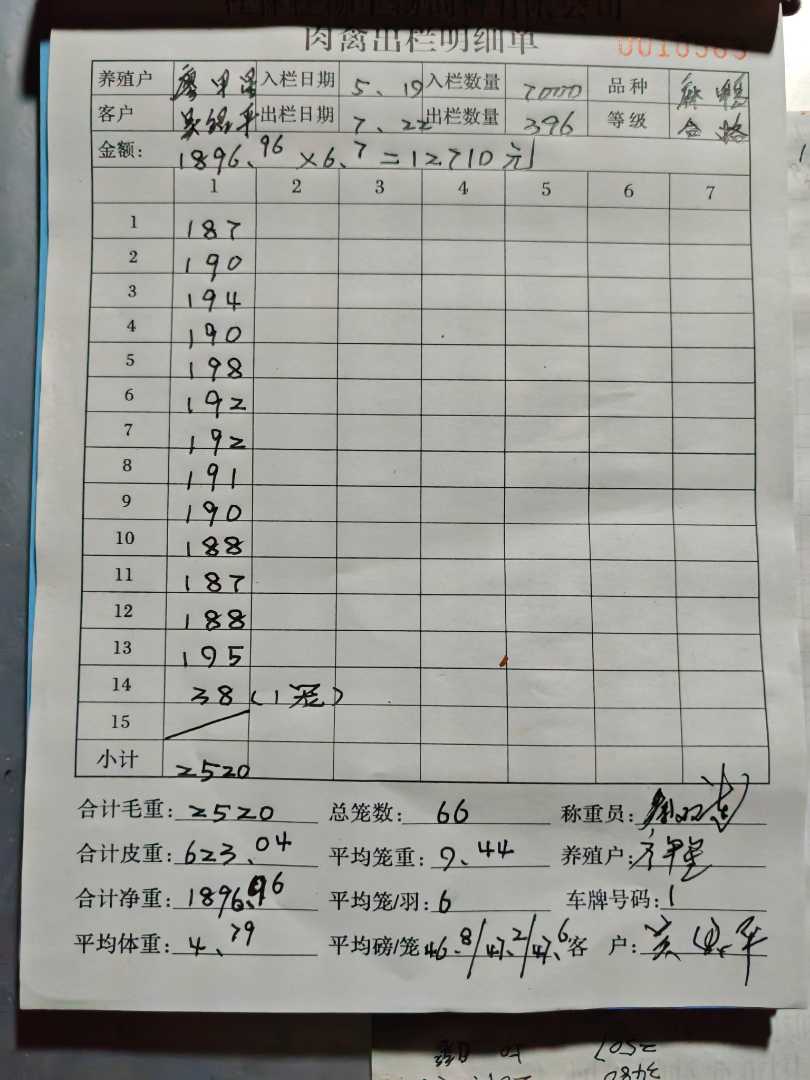 肉禽出栏明细单 0010565
养殖户 入栏日期 5、19 入栏数量 7000 品种 麻鸭
客户 出栏日期 7、22 出栏数量 396 等级 合格
金额: 1896.96×6.7=12710元
1 2 3 4 5 6 7
1 187
2 190
3 194
4 190
5 198
6 192
7 192
8 191
9 190
10 188
11 187
12 188
13 195
14 38(1笼)
15
小计 2520
合计毛重: 2520 总笼数: 66 称重员:
合计皮重: 623.04 平均笼重: 9.44 养殖户:
合计净重: 1896.96 平均笼/羽: 6 车牌号码: 1
平均体重: 4.79 平均磅/笼 46.8/47.2/47.6 客 户:
2507
3480